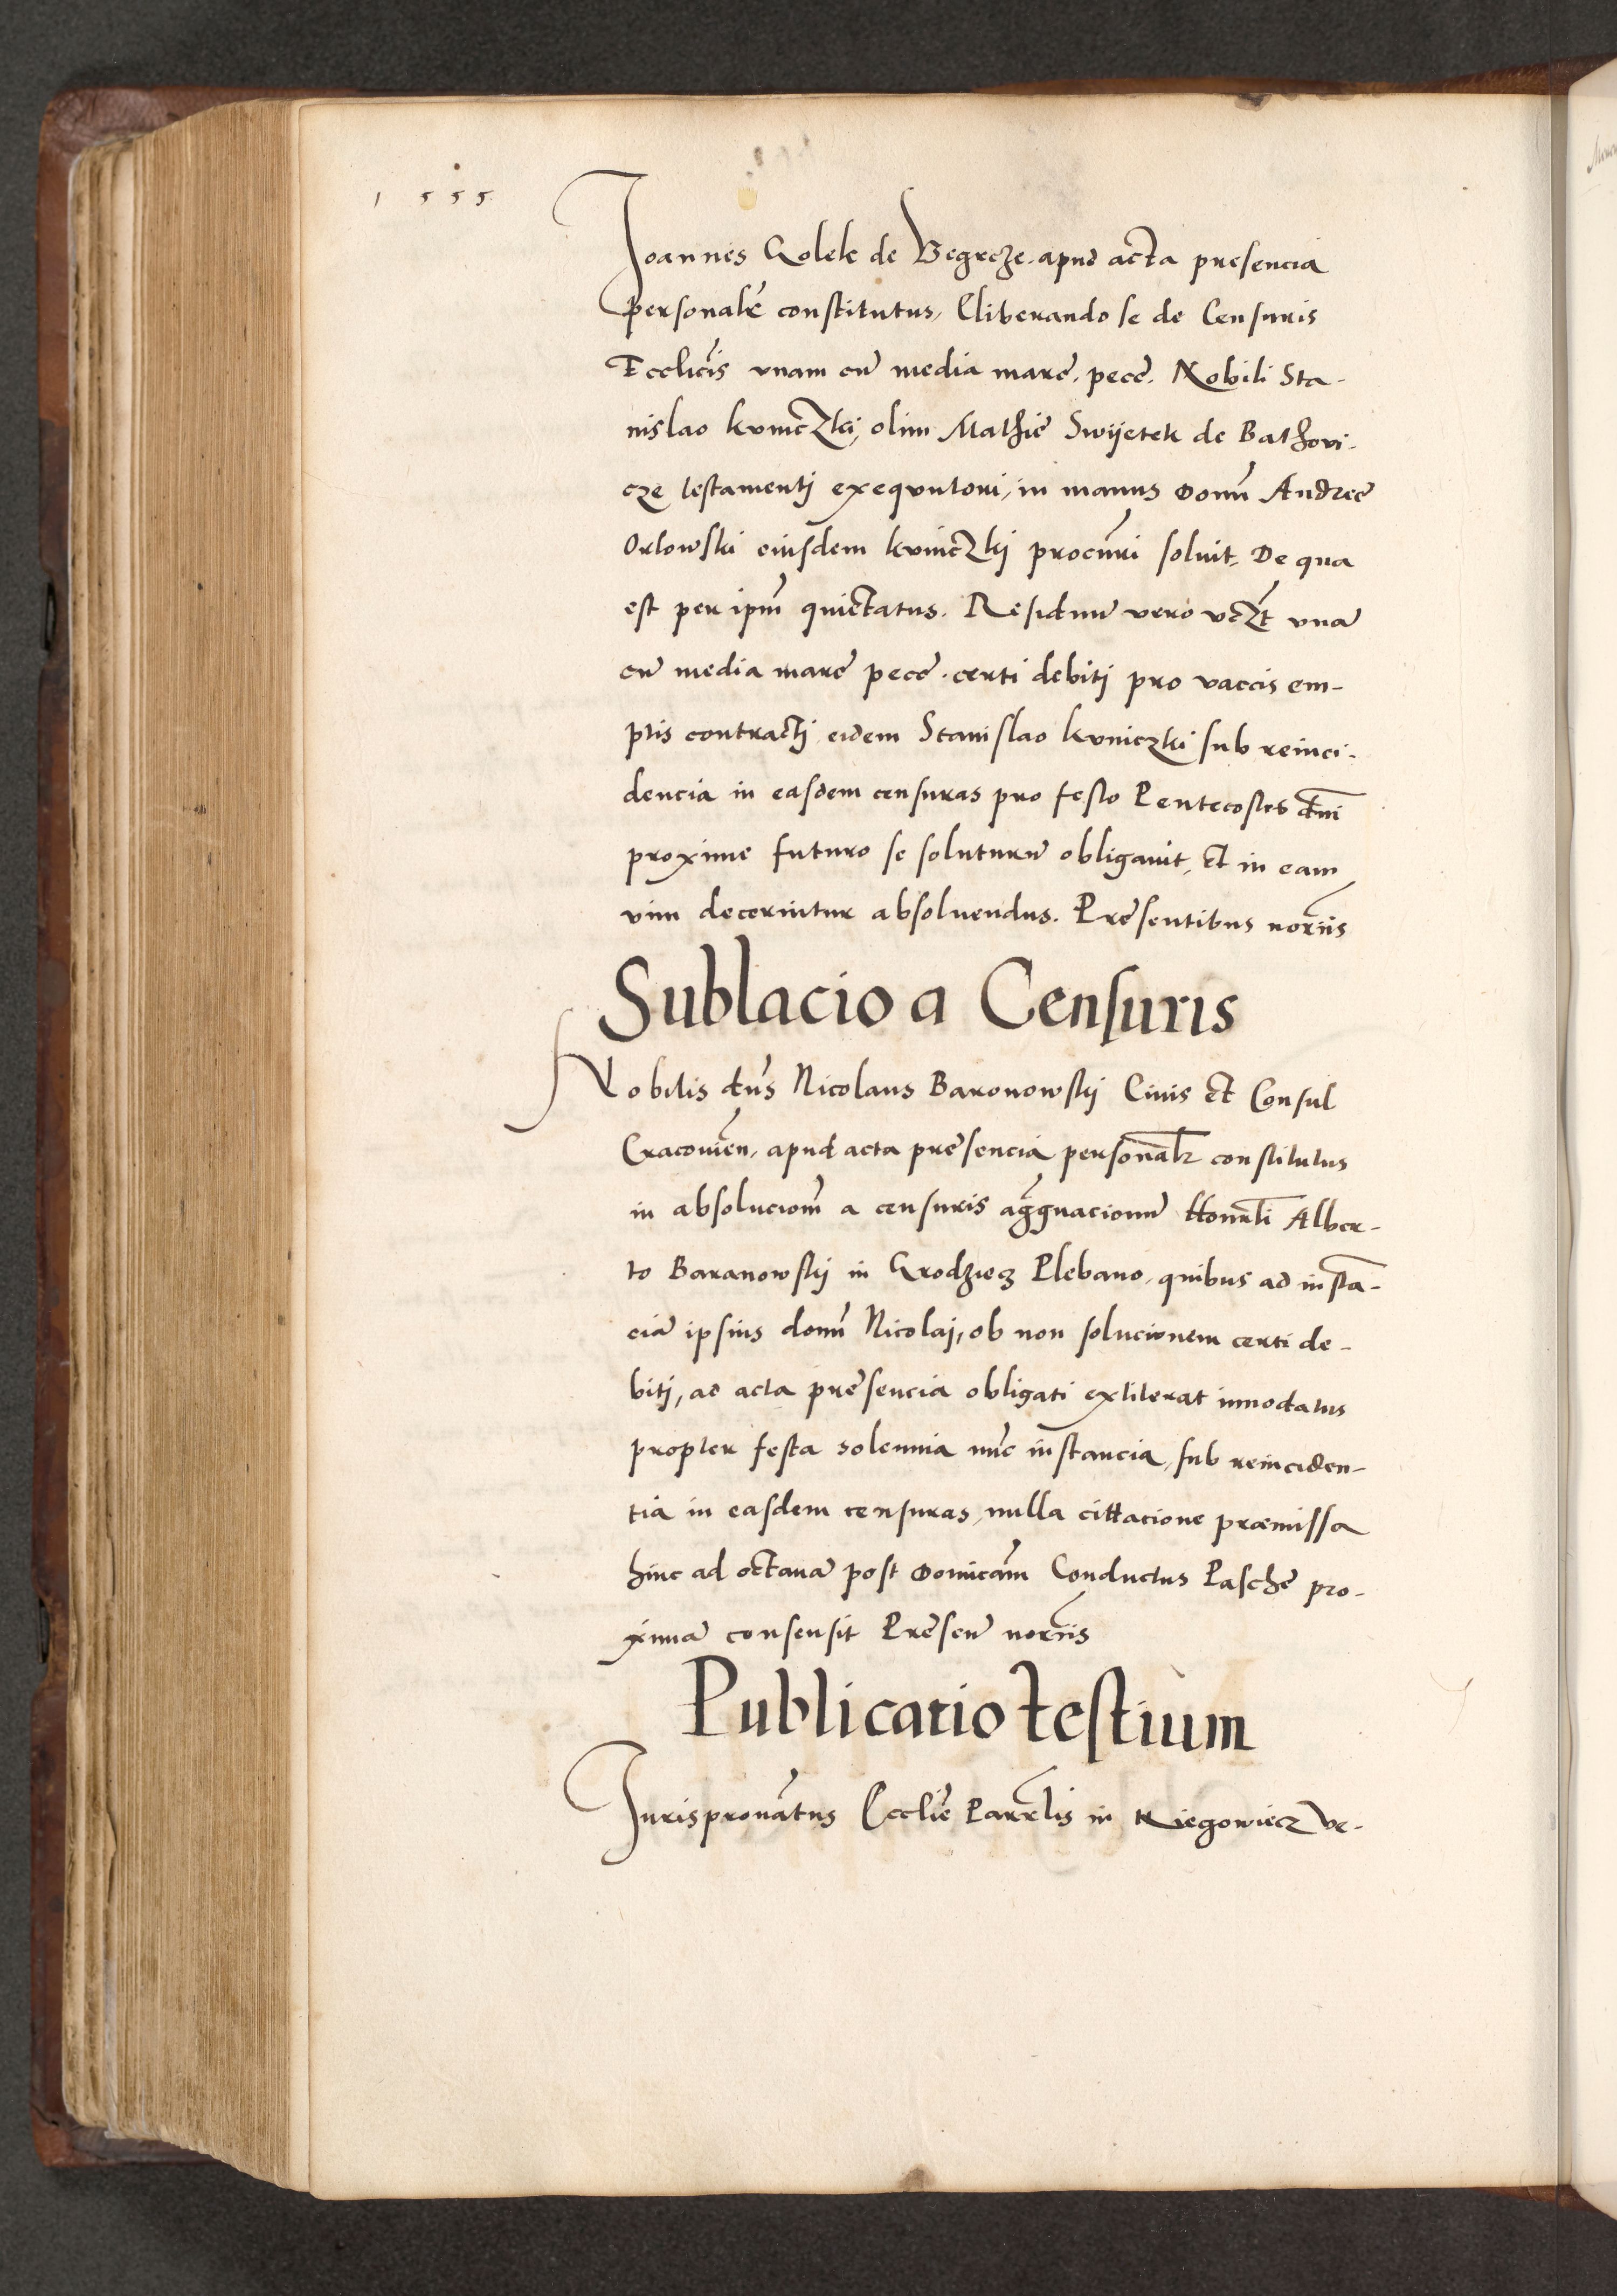 1555
Joannes Golek de Begrcze. apud acta presencia
personalr̃ constitutus, Eliberando se de Censuris
Ecclicĩs vnam cũ media marc̃. pecc̃. Nobili Sta-
nislao kvniczkj, olim Mathiẽ Swijetek de Bathovi-
cze testamentj exequutori, in manus domñ Andreẽ
Orlowski eiusdem kvniczkj procurĩ soluit. De qua
est per ipm̃ quietatus. Residuũ vero vczt̃ vnã
cũ media marc̃ pecc̃. certi debitj pro vaccis em-
ptis contractj eidem Stanislao kvniczki sub reinci-
dencia in easdem censuras pro festo Pentecostes dñni
proxime futuro se soluturũ obligauit, et in eam
vim decerintur absoluendus. Prẽsentibus norĩis
Sublacio a Censuris
Nobilis dñs Nicolaus Baronowskj Ciuis et Consul
Cracouieñ, apud acta prẽsencia personalr̃ constitutus
in absolucionm̃ a censuris aggrauacionũ Honrl̃i Alber-
to Baranowskj in Grodziecz Plebano, quibus ad insta-
ciã ipsius domñ Nicolaj, ob non solucionem certi de-
bitj, ad acta prẽsencia obligati extiterat innodatus
propter festa solennia nũc instancia, sub reinciden-
tia in easdem censuras, nulla cittacione præmissa
hinc ad octauã post domicãm Conductus Paschẽ pro-
ximã consensit Prẽsenũ norĩis
Publicatio testium
Jurispronãtus Ecclĩe Parrl̃is in Niegowiecz Ve-